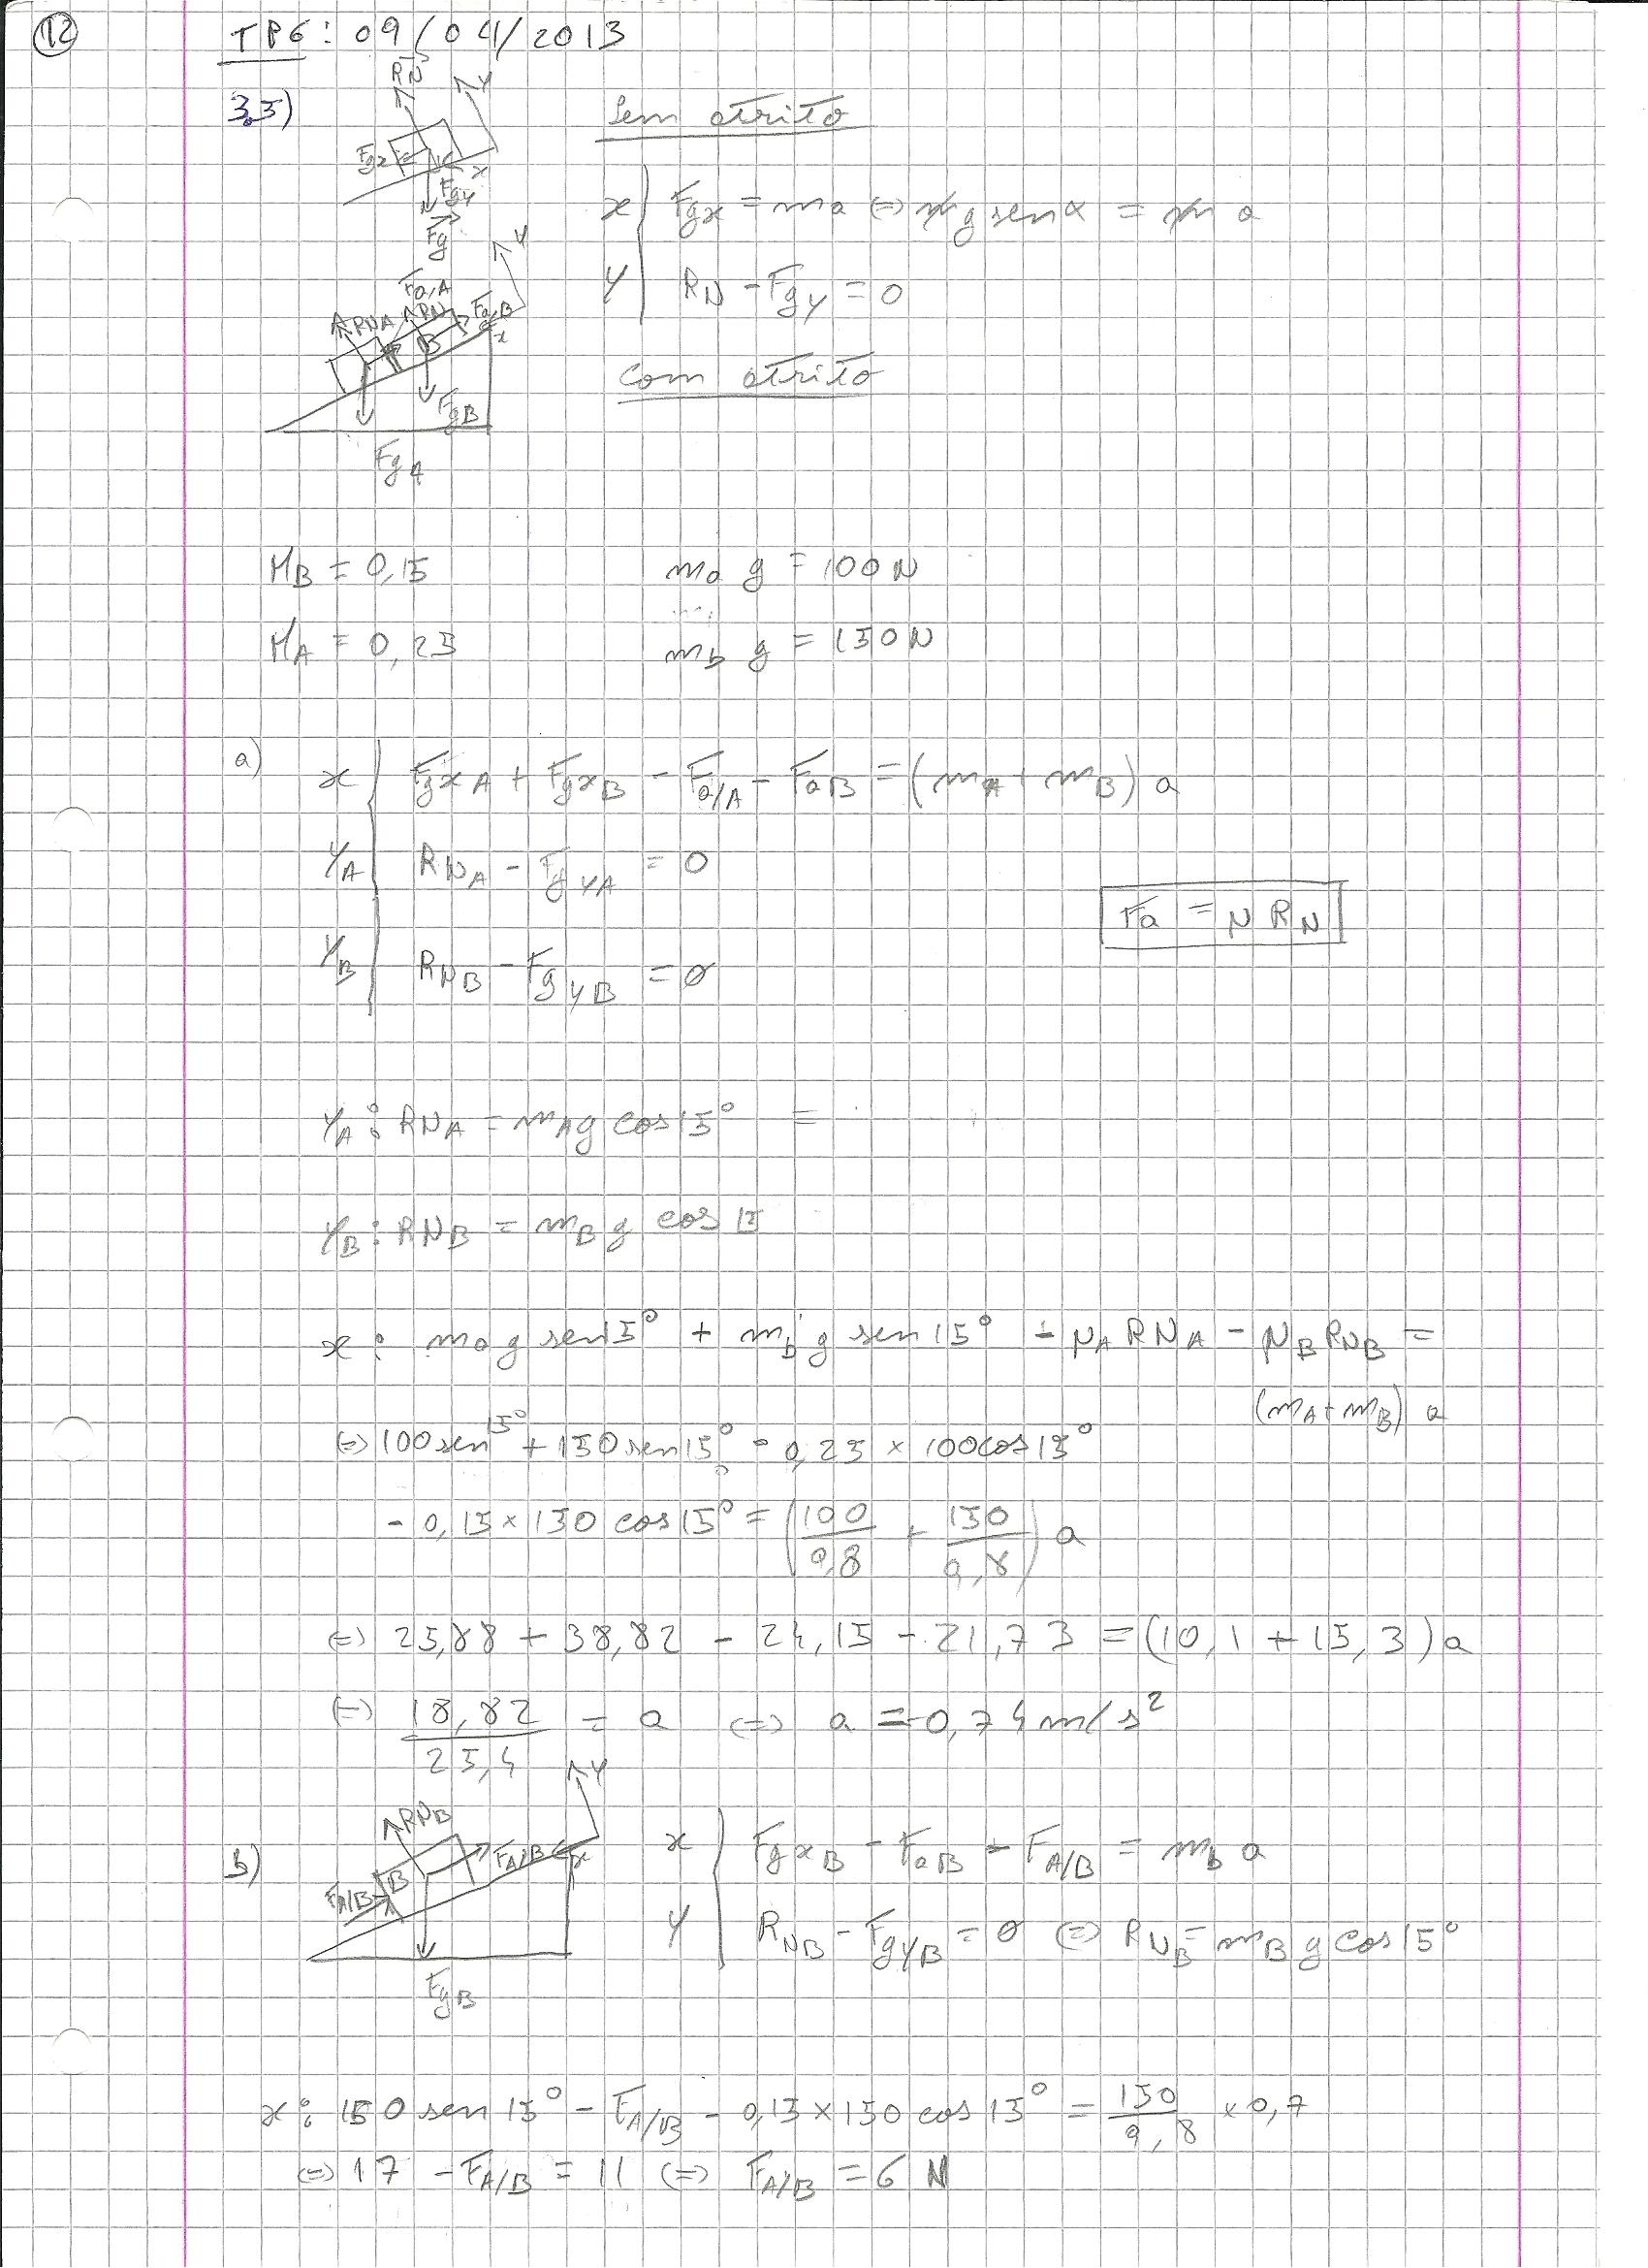 12
TP6: 09/04/2013
3.5)
RN
Y
Fgx
x
Fgy
Fg
Sem atrito
x Fgx = ma (=) mg sen α = m a
Y RN - FgY = 0
Y
Fa,A
RNA
RN
Fa,B
B
x
FgB
FgA
Com atrito
μB = 0,15 ma g = 100 N
μA = 0,25 mb g = 150 N
a) x FgxA + FgxB - Fa/A - FaB = (mA + mB) a
YA RNA - FgYA = 0
Fa = μ RN
YB RNB - FgYB = 0
YA: RNA = mAg cos 15° =
YB: RNB = mB g cos 15
x: ma g sen 15° + mb g sen 15° - μA RNA - μB RNB =
(mA + mB) a
(=) 100 sen 15° + 150 sen 15° - 0,25 × 100 cos 15°
- 0,15 × 150 cos 15° = (100/9,8 + 150/9,8) a
(=) 25,88 + 38,82 - 24,15 - 21,73 = (10,1 + 15,3) a
(=) 18,82/25,4 = a (=) a = 0,74 m/s²
b)
Y
RNB
FA/B
x
FA/B
B
FgB
x FgxB - FaB - FA/B = mb a
Y RNB - FgYB = 0 (=) RNB = mB g cos 15°
x: 150 sen 15° - FA/B - 0,15 × 150 cos 15° = 150/9,8 × 0,7
(=) 17 - FA/B = 11 (=) FA/B = 6 N